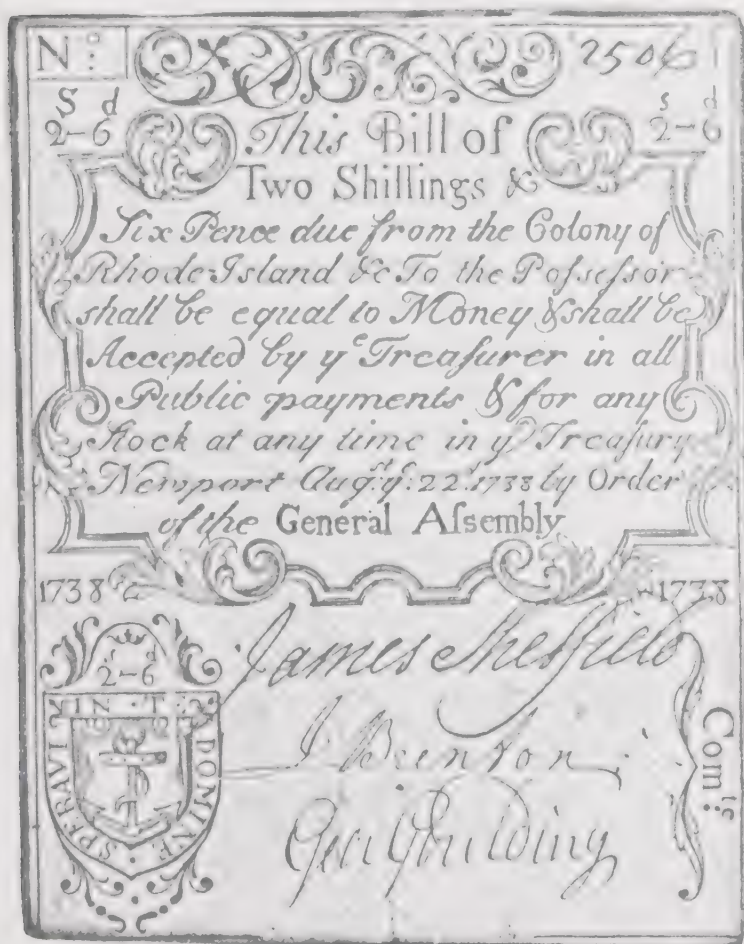 Nº: 2506
S d
2–6
s d
2–6
This Bill of
Two Shillings &
Six Pence due from the Colony of
Rhode Island &c To the Poſseſsor
shall be equal to Money & shall be
Accepted by yᵉ Treaſurer in all
Public payments & for any
Stock at any time in yᵉ Treaſury
Newport Augˢᵗ yᵉ: 22ᵈ 1738 by Order
of the General Aſsembly
1738
1738
s d
2–6
IN TE DOMINE SPERAVI
James Sheffield
J Brinton
Geo Goulding
Comᵗᵉ: